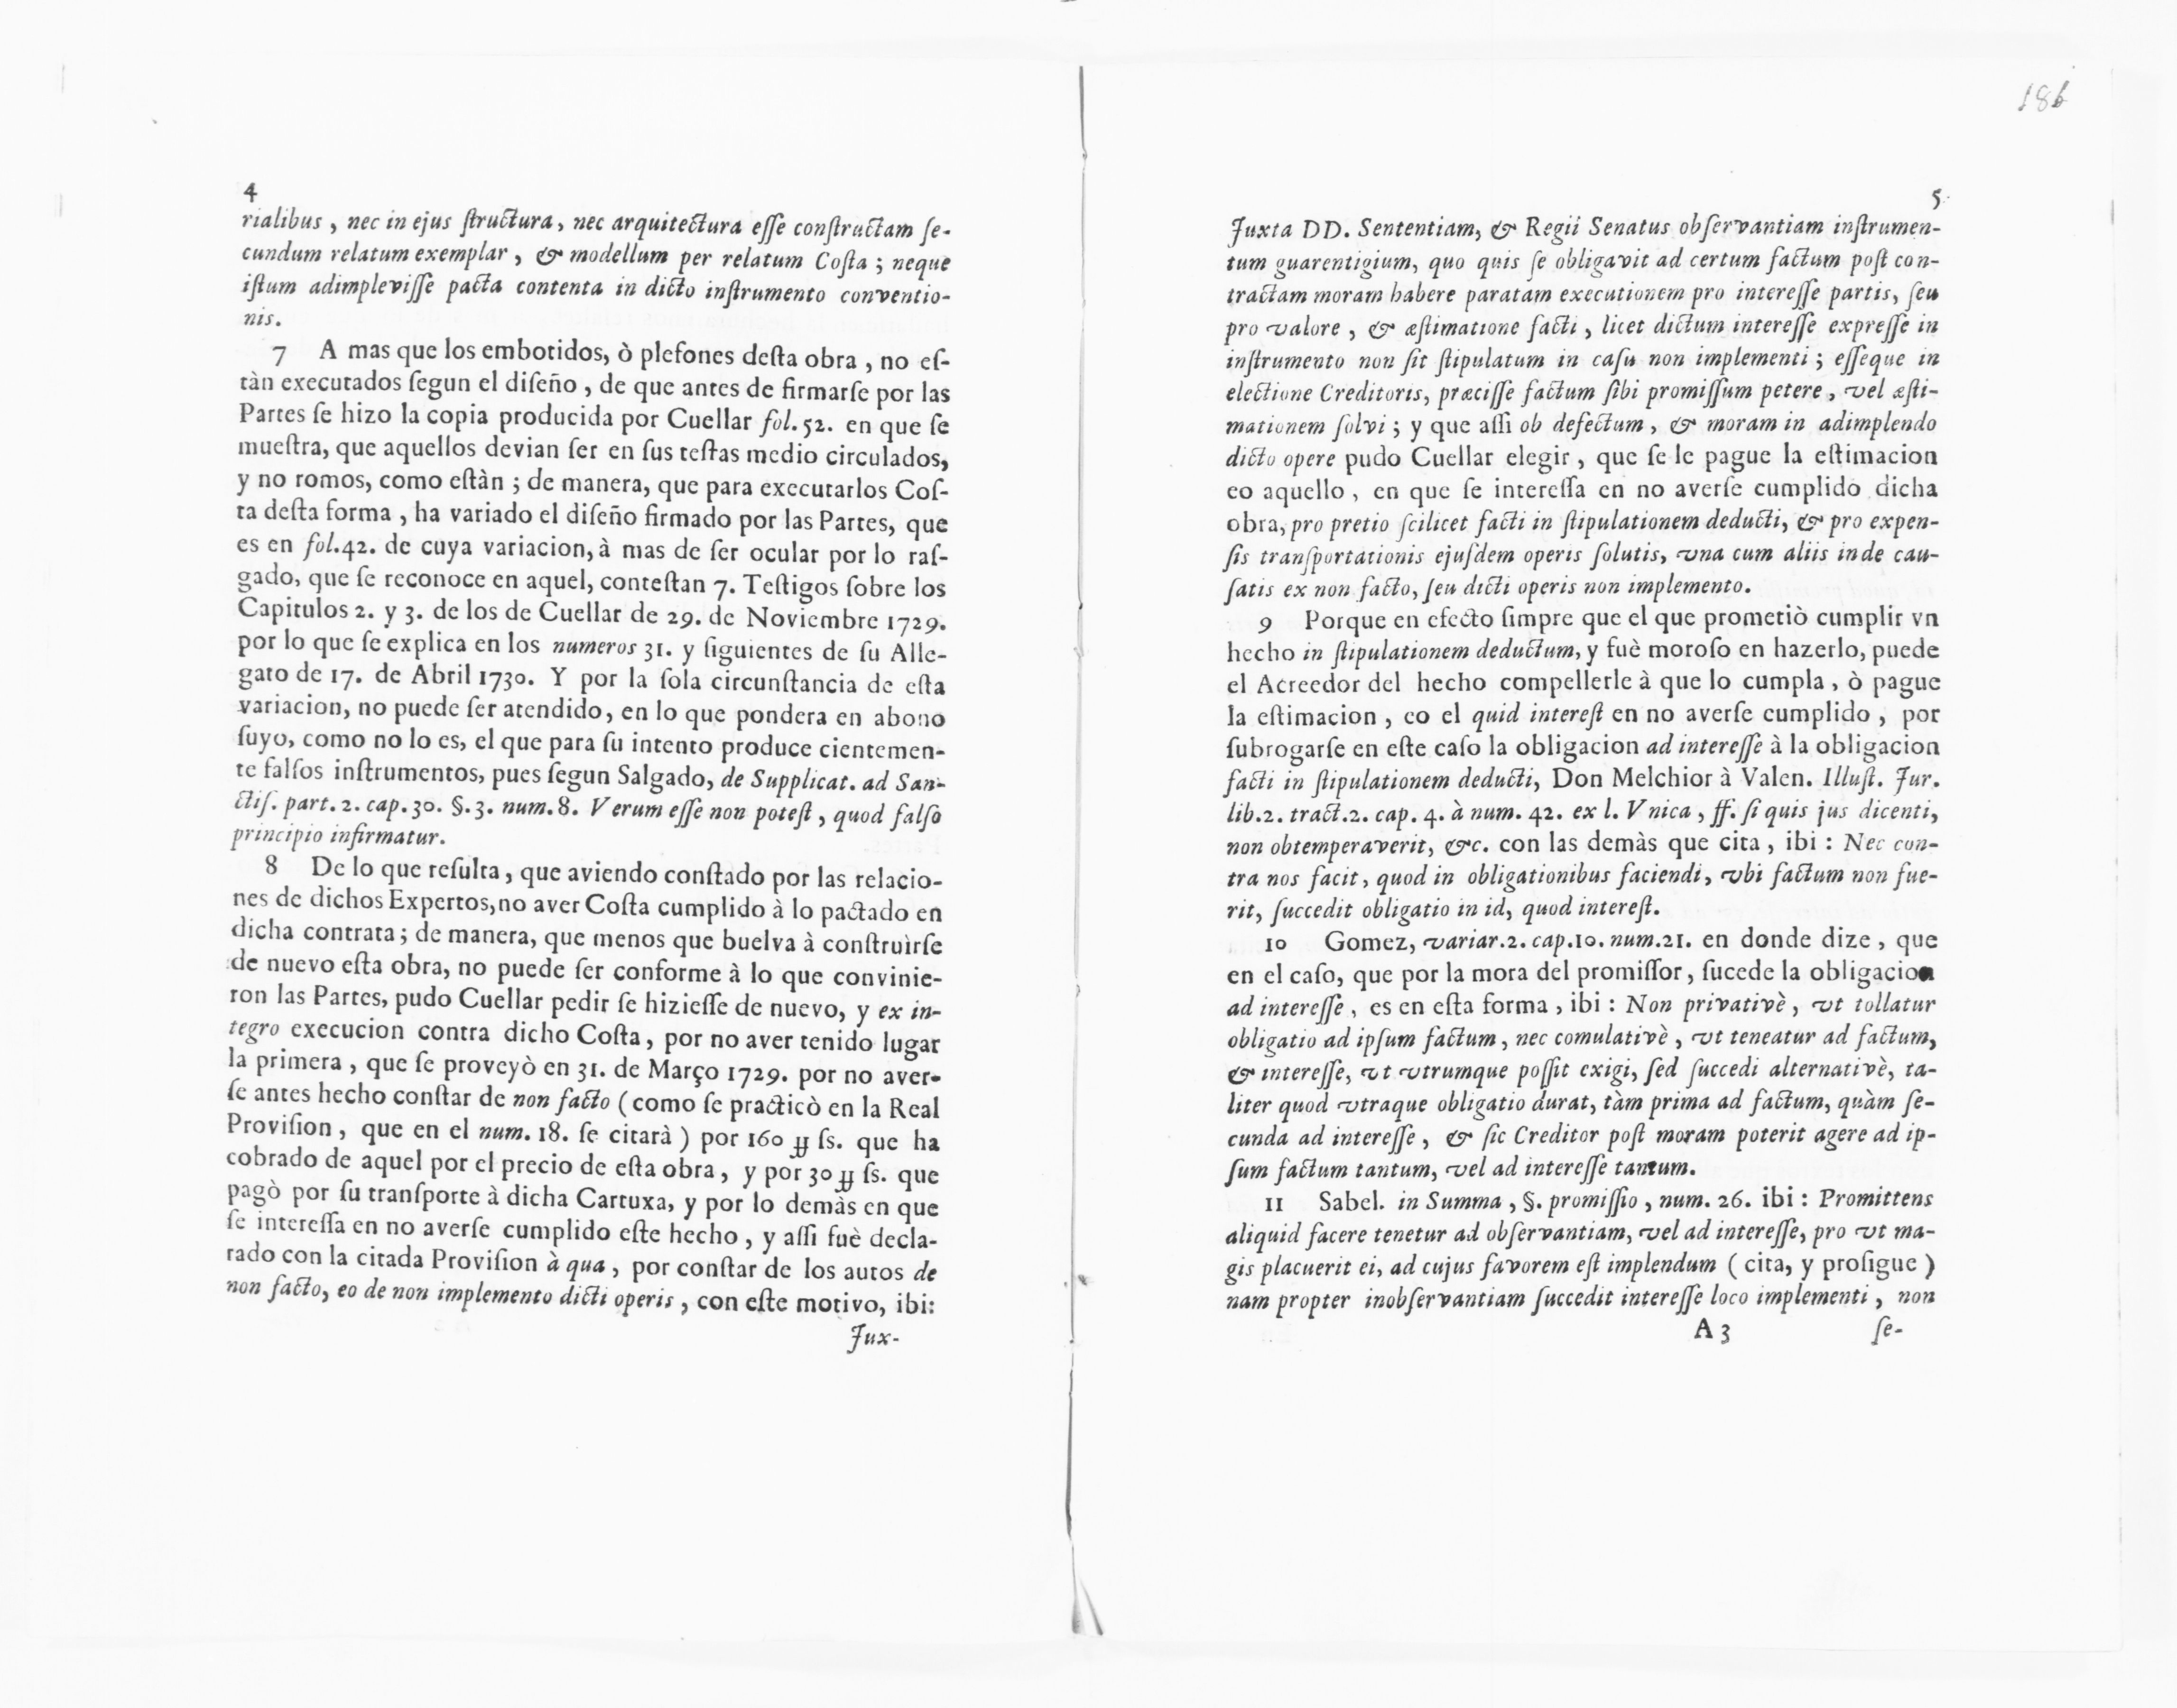 4
rialibus , nec in ejus ſtructura, nec arquitectura eſſe conſtructam ſe-
cundum relatum exemplar , & modellum per relatum Coſta ; neque
iſtum adimpleviſſe pacta contenta in dicto inſtrumento conventio-
nis.
7 A mas que los embotidos, ò plefones deſta obra , no eſ-
tàn executados ſegun el diſeño , de que antes de firmarſe por las
Partes ſe hizo la copia producida por Cuellar fol. 52. en que ſe
mueſtra, que aquellos devian ſer en ſus teſtas medio circulados,
y no romos, como eſtàn ; de manera, que para executarlos Coſ-
ta deſta forma , ha variado el diſeño firmado por las Partes, que
es en fol.42. de cuya variacion, à mas de ſer ocular por lo raſ-
gado, que ſe reconoce en aquel, conteſtan 7. Teſtigos ſobre los
Capitulos 2. y 3. de los de Cuellar de 29. de Noviembre 1729.
por lo que ſe explica en los numeros 31. y ſiguientes de ſu Alle-
gato de 17. de Abril 1730. Y por la ſola circunſtancia de eſta
variacion, no puede ſer atendido, en lo que pondera en abono
ſuyo, como no lo es, el que para ſu intento produce cientemen-
te falſos inſtrumentos, pues ſegun Salgado, de Supplicat. ad San-
ctiſ. part. 2. cap. 30. §. 3. num. 8. Verum eſſe non poteſt , quod falſo
principio infirmatur.
8 De lo que reſulta , que aviendo conſtado por las relacio-
nes de dichos Expertos, no aver Coſta cumplido à lo pactado en
dicha contrata ; de manera, que menos que buelva à conſtruìrſe
de nuevo eſta obra, no puede ſer conforme à lo que convinie-
ron las Partes, pudo Cuellar pedir ſe hizieſſe de nuevo, y ex in-
tegro execucion contra dicho Coſta , por no aver tenido lugar
la primera , que ſe proveyò en 31. de Março 1729. por no aver-
ſe antes hecho conſtar de non facto ( como ſe practicò en la Real
Proviſion , que en el num. 18. ſe citarà ) por 160 ℔ ſs. que ha
cobrado de aquel por el precio de eſta obra , y por 30 ℔ ſs. que
pagò por ſu tranſporte à dicha Cartuxa, y por lo demàs en que
ſe intereſſa en no averſe cumplido eſte hecho , y aſſi fuè decla-
rado con la citada Proviſion à qua , por conſtar de los autos de
non facto, eo de non implemento dicti operis , con eſte motivo, ibi:
Jux-
186
5
Juxta DD. Sententiam, & Regii Senatus obſervantiam inſtrumen-
tum guarentigium, quo quis ſe obligavit ad certum factum poſt con-
tractam moram habere paratam executionem pro intereſſe partis, ſeu
pro valore , & æſtimatione facti , licet dictum intereſſe expreſſe in
inſtrumento non ſit ſtipulatum in caſu non implementi ; eſſeque in
electione Creditoris, præciſſe factum ſibi promiſſum petere , vel æſti-
mationem ſolvi ; y que aſſi ob defectum , & moram in adimplendo
dicto opere pudo Cuellar elegir , que ſe le pague la eſtimacion
eo aquello , en que ſe intereſſa en no averſe cumplido dicha
obra, pro pretio ſcilicet facti in ſtipulationem deducti, & pro expen-
ſis tranſportationis ejuſdem operis ſolutis, una cum aliis inde cau-
ſatis ex non facto, ſeu dicti operis non implemento.
9 Porque en efecto ſimpre que el que prometiò cumplir vn
hecho in ſtipulationem deductum, y fuè moroſo en hazerlo, puede
el Acreedor del hecho compellerle à que lo cumpla , ò pague
la eſtimacion , eo el quid intereſt en no averſe cumplido , por
ſubrogarſe en eſte caſo la obligacion ad intereſſe à la obligacion
facti in ſtipulationem deducti, Don Melchior à Valen. Illuſt. Jur.
lib.2. tract.2. cap. 4. à num. 42. ex l. Vnica , ff. ſi quis jus dicenti,
non obtemperaverit, &c. con las demàs que cita , ibi : Nec con-
tra nos facit, quod in obligationibus faciendi, vbi factum non fue-
rit, ſuccedit obligatio in id, quod intereſt.
10 Gomez, variar.2. cap.10. num.21. en donde dize , que
en el caſo, que por la mora del promiſſor, ſucede la obligacion
ad intereſſe , es en eſta forma , ibi : Non privativè , vt tollatur
obligatio ad ipſum factum , nec comulativè , vt teneatur ad factum,
& intereſſe, vt vtrumque poſſit exigi, ſed ſuccedi alternativè, ta-
liter quod vtraque obligatio durat, tàm prima ad factum, quàm ſe-
cunda ad intereſſe , & ſic Creditor poſt moram poterit agere ad ip-
ſum factum tantum, vel ad intereſſe tantum.
11 Sabel. in Summa , §. promiſſio , num. 26. ibi : Promittens
aliquid facere tenetur ad obſervantiam, vel ad intereſſe, pro vt ma-
gis placuerit ei, ad cujus favorem eſt implendum ( cita, y proſigue )
nam propter inobſervantiam ſuccedit intereſſe loco implementi , non
A 3 ſe-